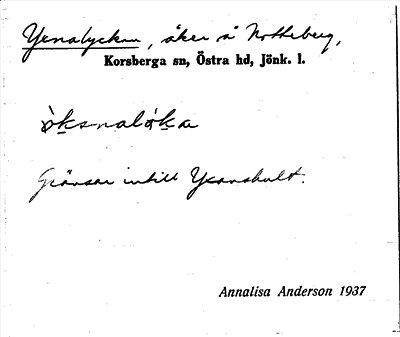 Yxnalyckan, åker å Notteberg,
Korsberga sn, Östra hd, Jönk. l.
öksnalöka
Gränsar intill Yxanshult.
Annalisa Anderson 1937